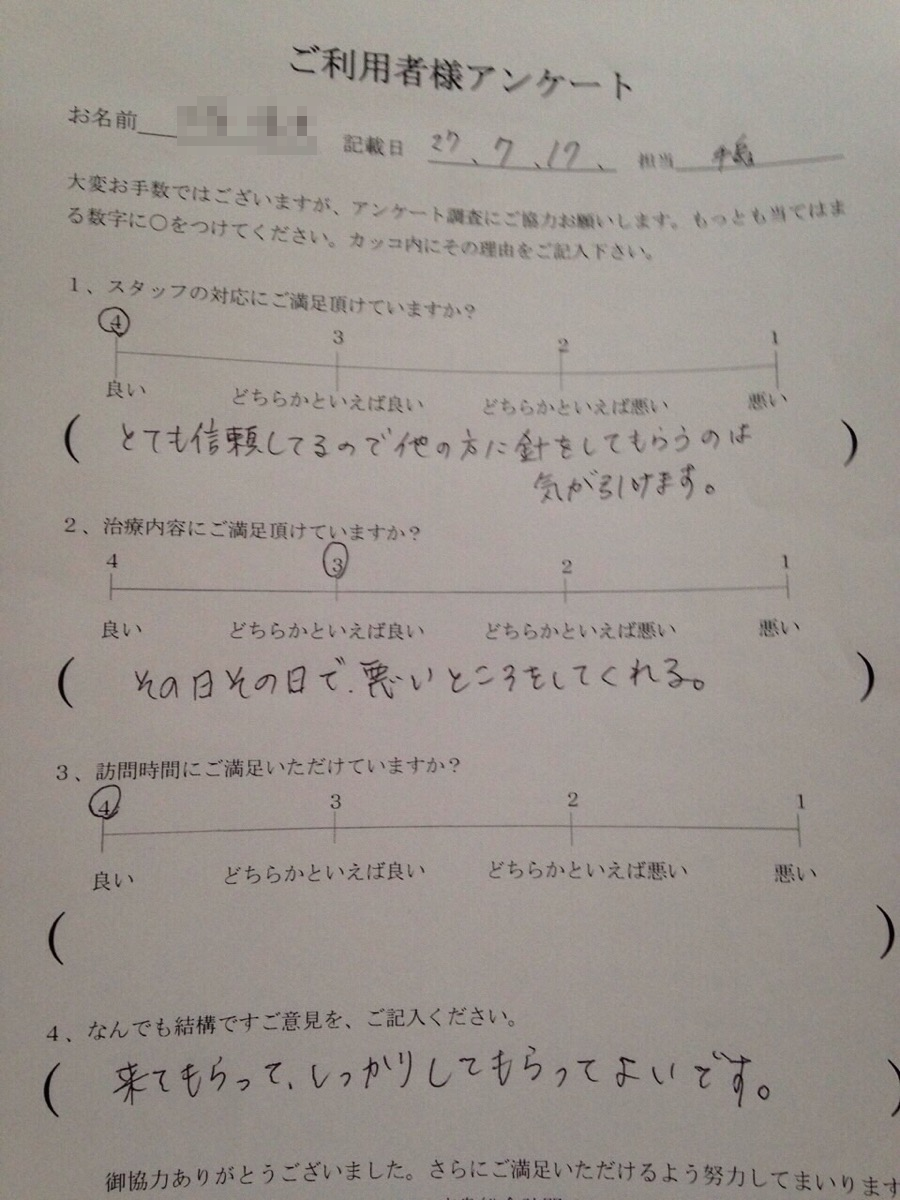 ご利用者様アンケート
お名前 記載日 27、7、17、 担当
大変お手数ではございますが、アンケート調査にご協力お願いします。もっとも当てはま
る数字に○をつけてください。カッコ内にその理由をご記入下さい。
1、スタッフの対応にご満足頂けていますか？
4 3 2 1
良い どちらかといえば良い どちらかといえば悪い 悪い
(とても信頼してるので他の方に針をしてもらうのは)
気が引けます。
2、治療内容にご満足頂けていますか？
4 3 2 1
良い どちらかといえば良い どちらかといえば悪い 悪い
(その日その日で、悪いところをしてくれる。)
3、訪問時間にご満足いただけていますか？
4 3 2 1
良い どちらかといえば良い どちらかといえば悪い 悪い
( )
4、なんでも結構ですご意見を、ご記入ください。
(来てもらって、しっかりしてもらってよいです。)
御協力ありがとうございました。さらにご満足いただけるよう努力してまいります